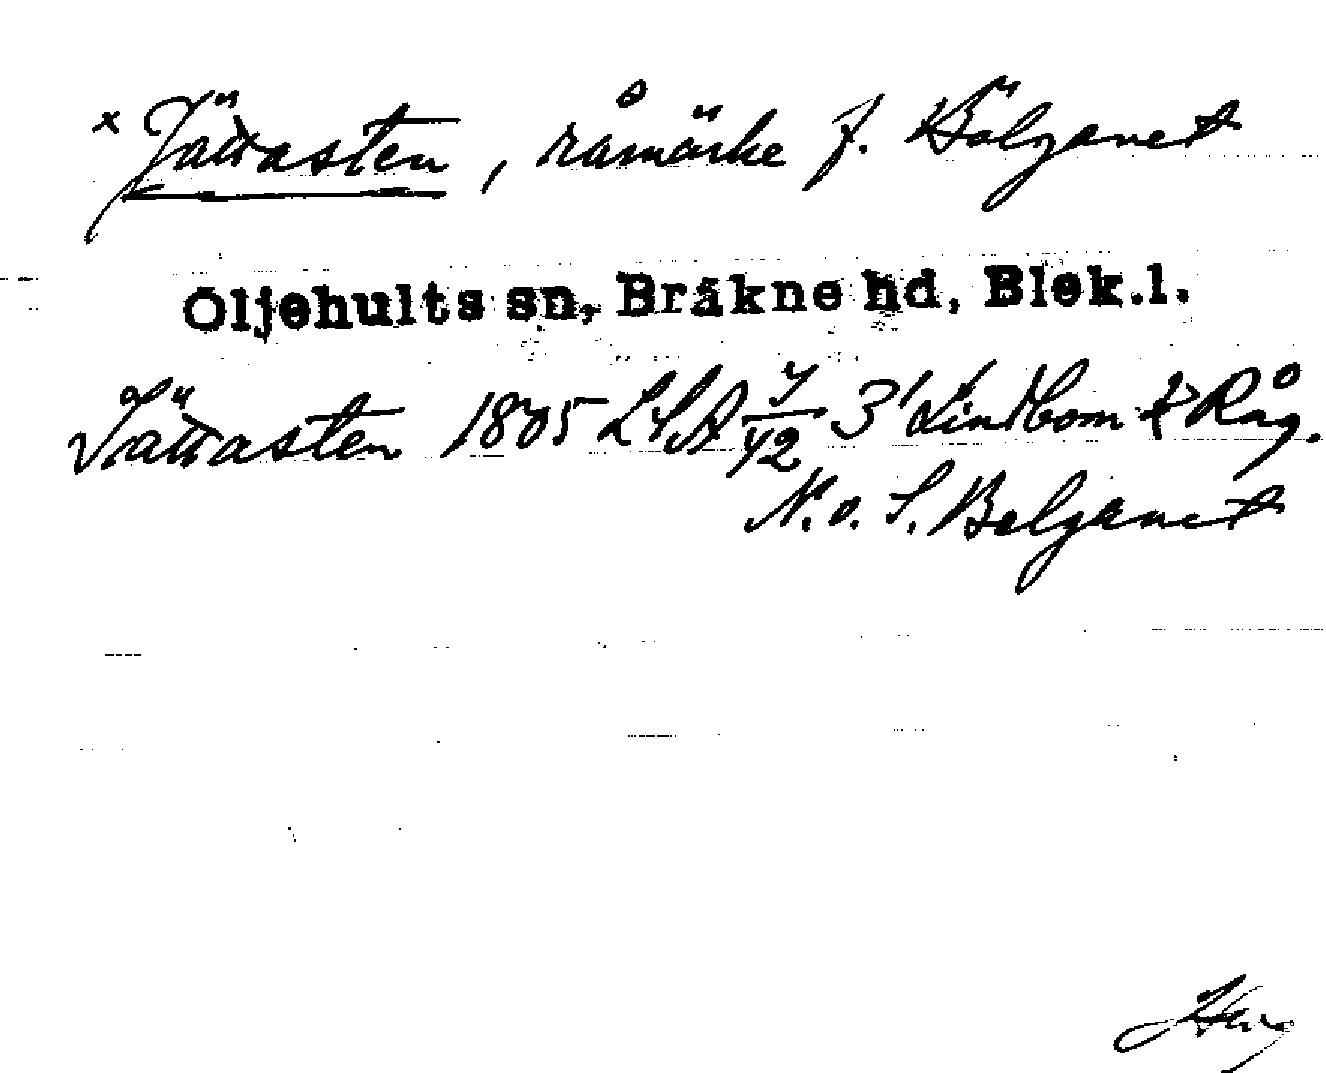 x Jättasten, råmärke f. Bälganet
Öljehults sn, Bräkne hd, Blek.l.
Jättasten 1805 LSA 7/42 3' Lindbom & Råg.
N. o. S. Belganet